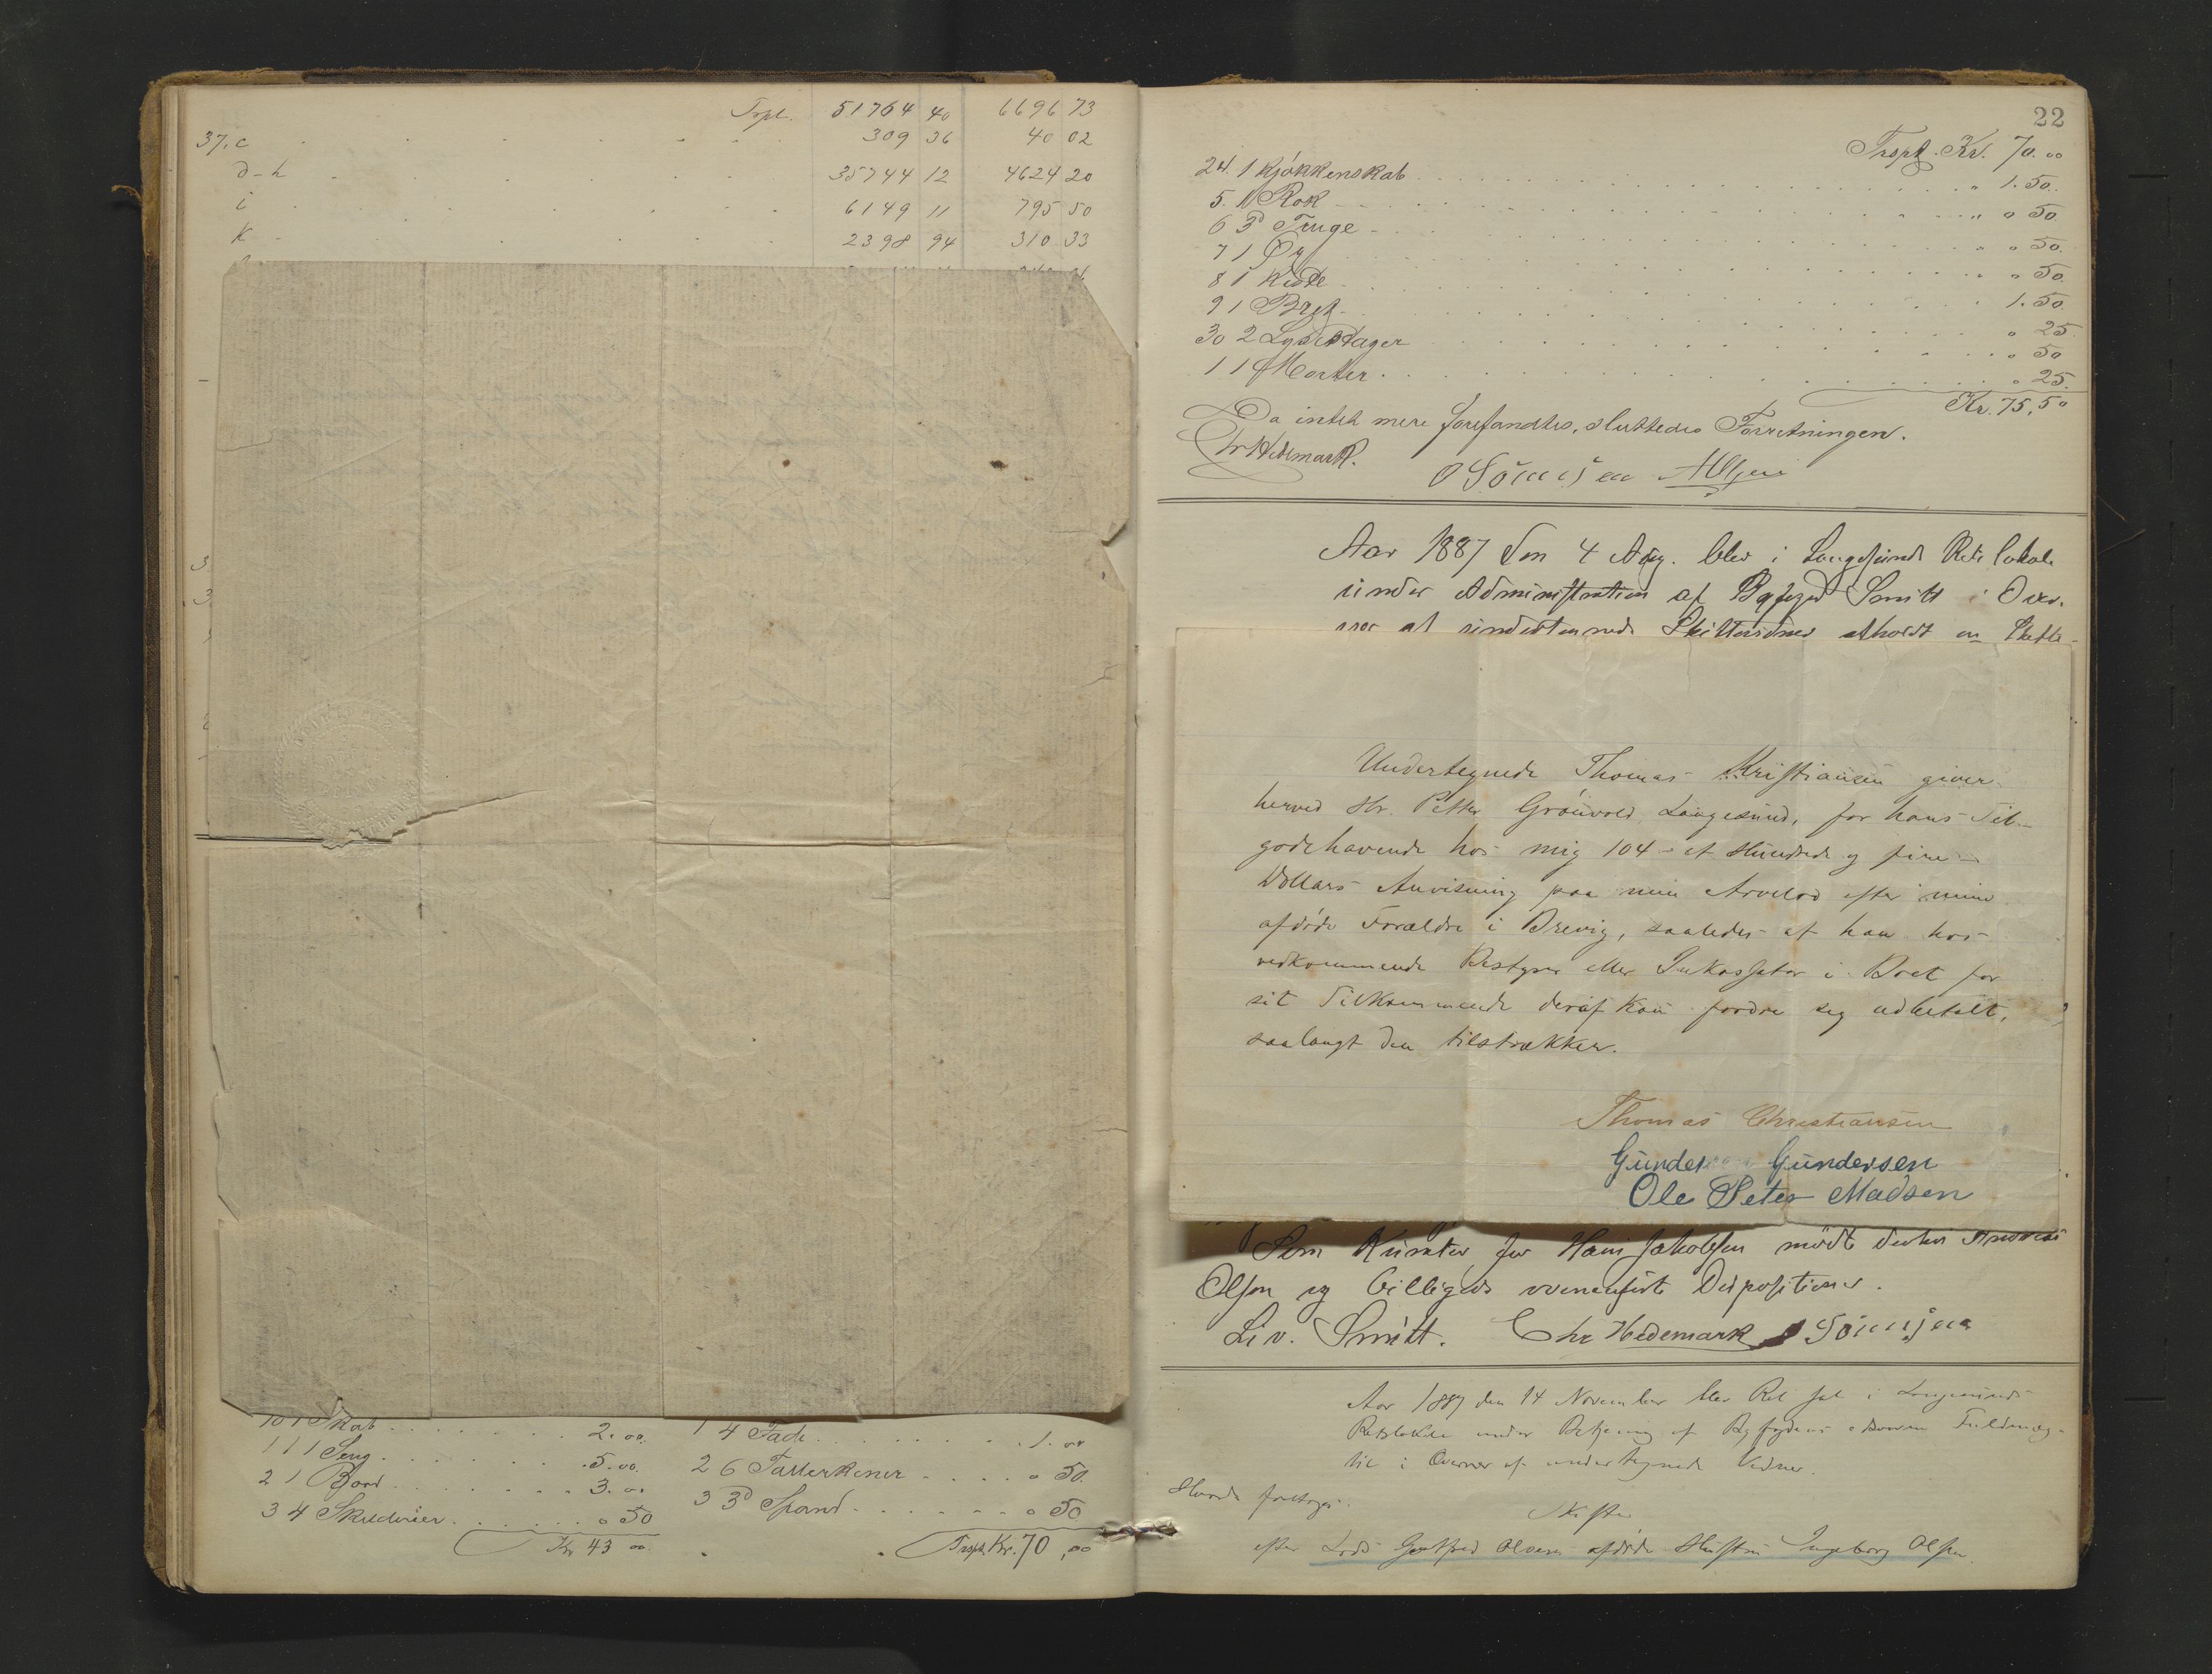 Trpt. 51764 40 6696 73
37. c 309 36 40 02
d-h 35744 12 4624 20
i 6149 11 795 50
k 2398 94 310 33
10 1 Skab 2.00
11 1 Seng 5.00
2 1 Bord 3.00
3 4 Skilderier " 50
Kr 43 00
1 4 Fade 1.00
2 6 Tallerkener " 50
3 3 Spand " 50
Trspt. Kr. 70,00
22
Trspt. Kr. 70.00
24. 1 Kjøkkenskab " 1.50
5. 1 Rok " " 50
6 3 " " 50
7 1 " " 50
8 1 Kiste 1.50
9 1 Bret " 25
30 2 Lysestager " 50
1 1 Morter " 25
Kr. 75,50
Da intet mere forefandtes, sluttedes Forretningen.
Chr Hedemark.
Aar 1887 den 4 Aug. blev i Langesunds Retslokale
under Administration af Byfoged Smitt i Over-
vær af undertegnede Skiftevidner afholdt en Skifte-
Undertegnede Thomas Kristiansen giver
herved Hr. Petter Grönvold, Langesund, for hans Til-
godehavende hos mig 104 - et Hundrede og fire -
Dollars Anvisning paa min Arvelod efter mine
afdöde Forældre i Brevig, saaledes at han hos
vedkommende Bestyrer eller Inkassator i Boet for
sit Tilkommende deraf kan fordre sig udbetalt,
saalangt den tilstrækker.
Thomas Christiansen
Gunder Gundersen
Ole Peter Madsen
Som Kurator for Hans Jakobsen mödte Andreas
Olsen og billigede ovenanførte Dispositioner.
Liv. Smitt. Chr Hedemark
Aar 1887 den 14 November blev Ret sat i Langesunds
Retslokale under Betjening af Byfogdens edsvorne Fuldmæg-
tig i Overvær af undertegnede Vidner.
Hvorda foretoges:
Skifte
efter Lods Gotfred Olsens afdöde Hustru Ingeborg Olsen